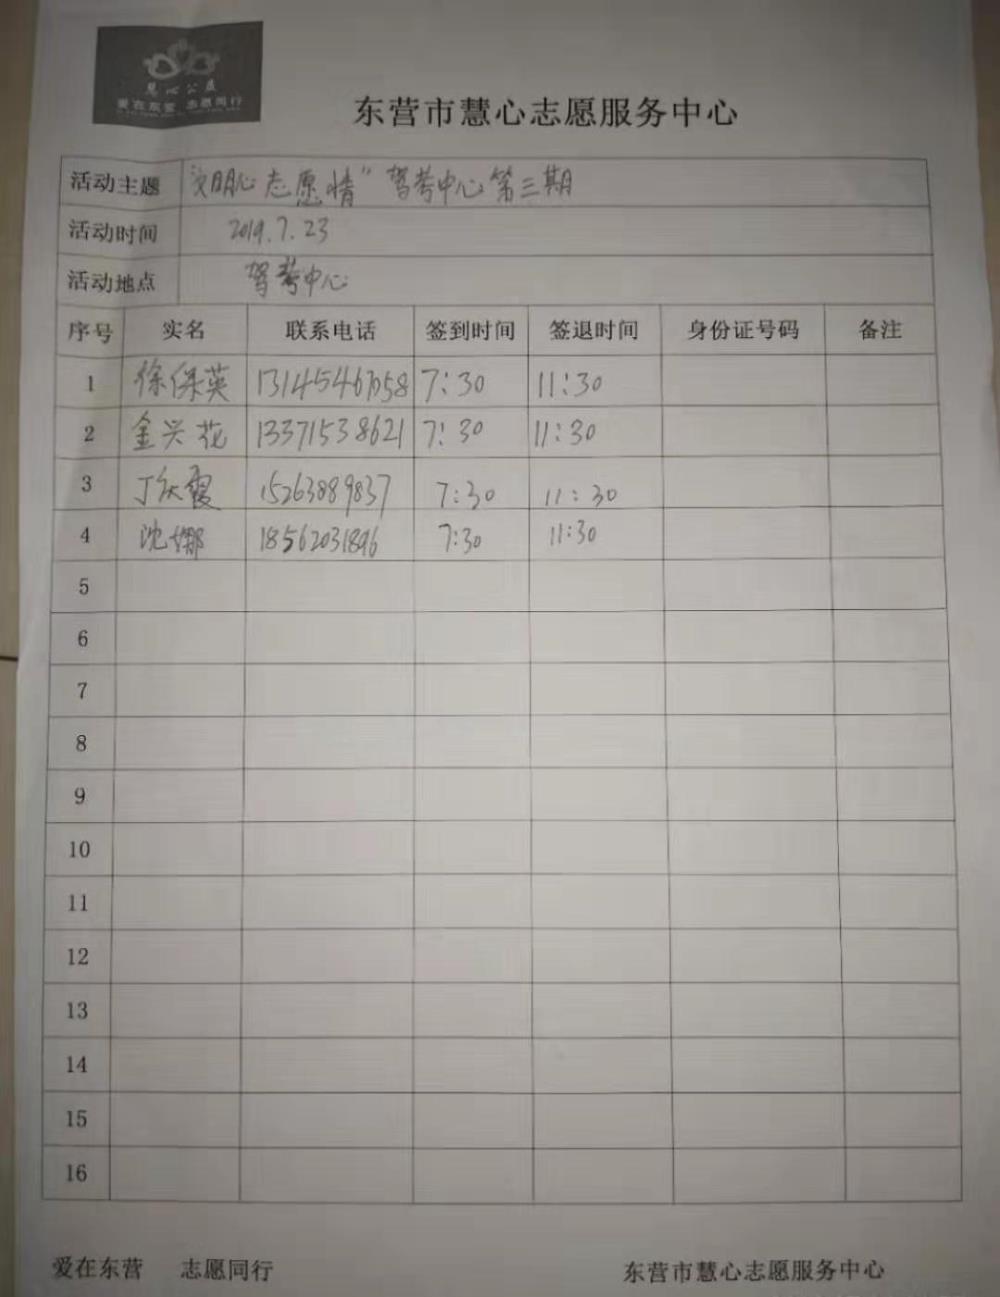 慧心公益
爱在东营 志愿同行
东营市慧心志愿服务中心
活动主题 “文明心 志愿情” 驾考中心第三期
活动时间 2019.7.23
活动地点 驾考中心
序号 实名 联系电话 签到时间 签退时间 身份证号码 备注
1 徐保英 13145467058 7:30 11:30
2 金兴花 13371538621 7:30 11:30
3 丁庆霞 15263889837 7:30 11:30
4 沈娜 18562031896 7:30 11:30
5
6
7
8
9
10
11
12
13
14
15
16
爱在东营 志愿同行 东营市慧心志愿服务中心